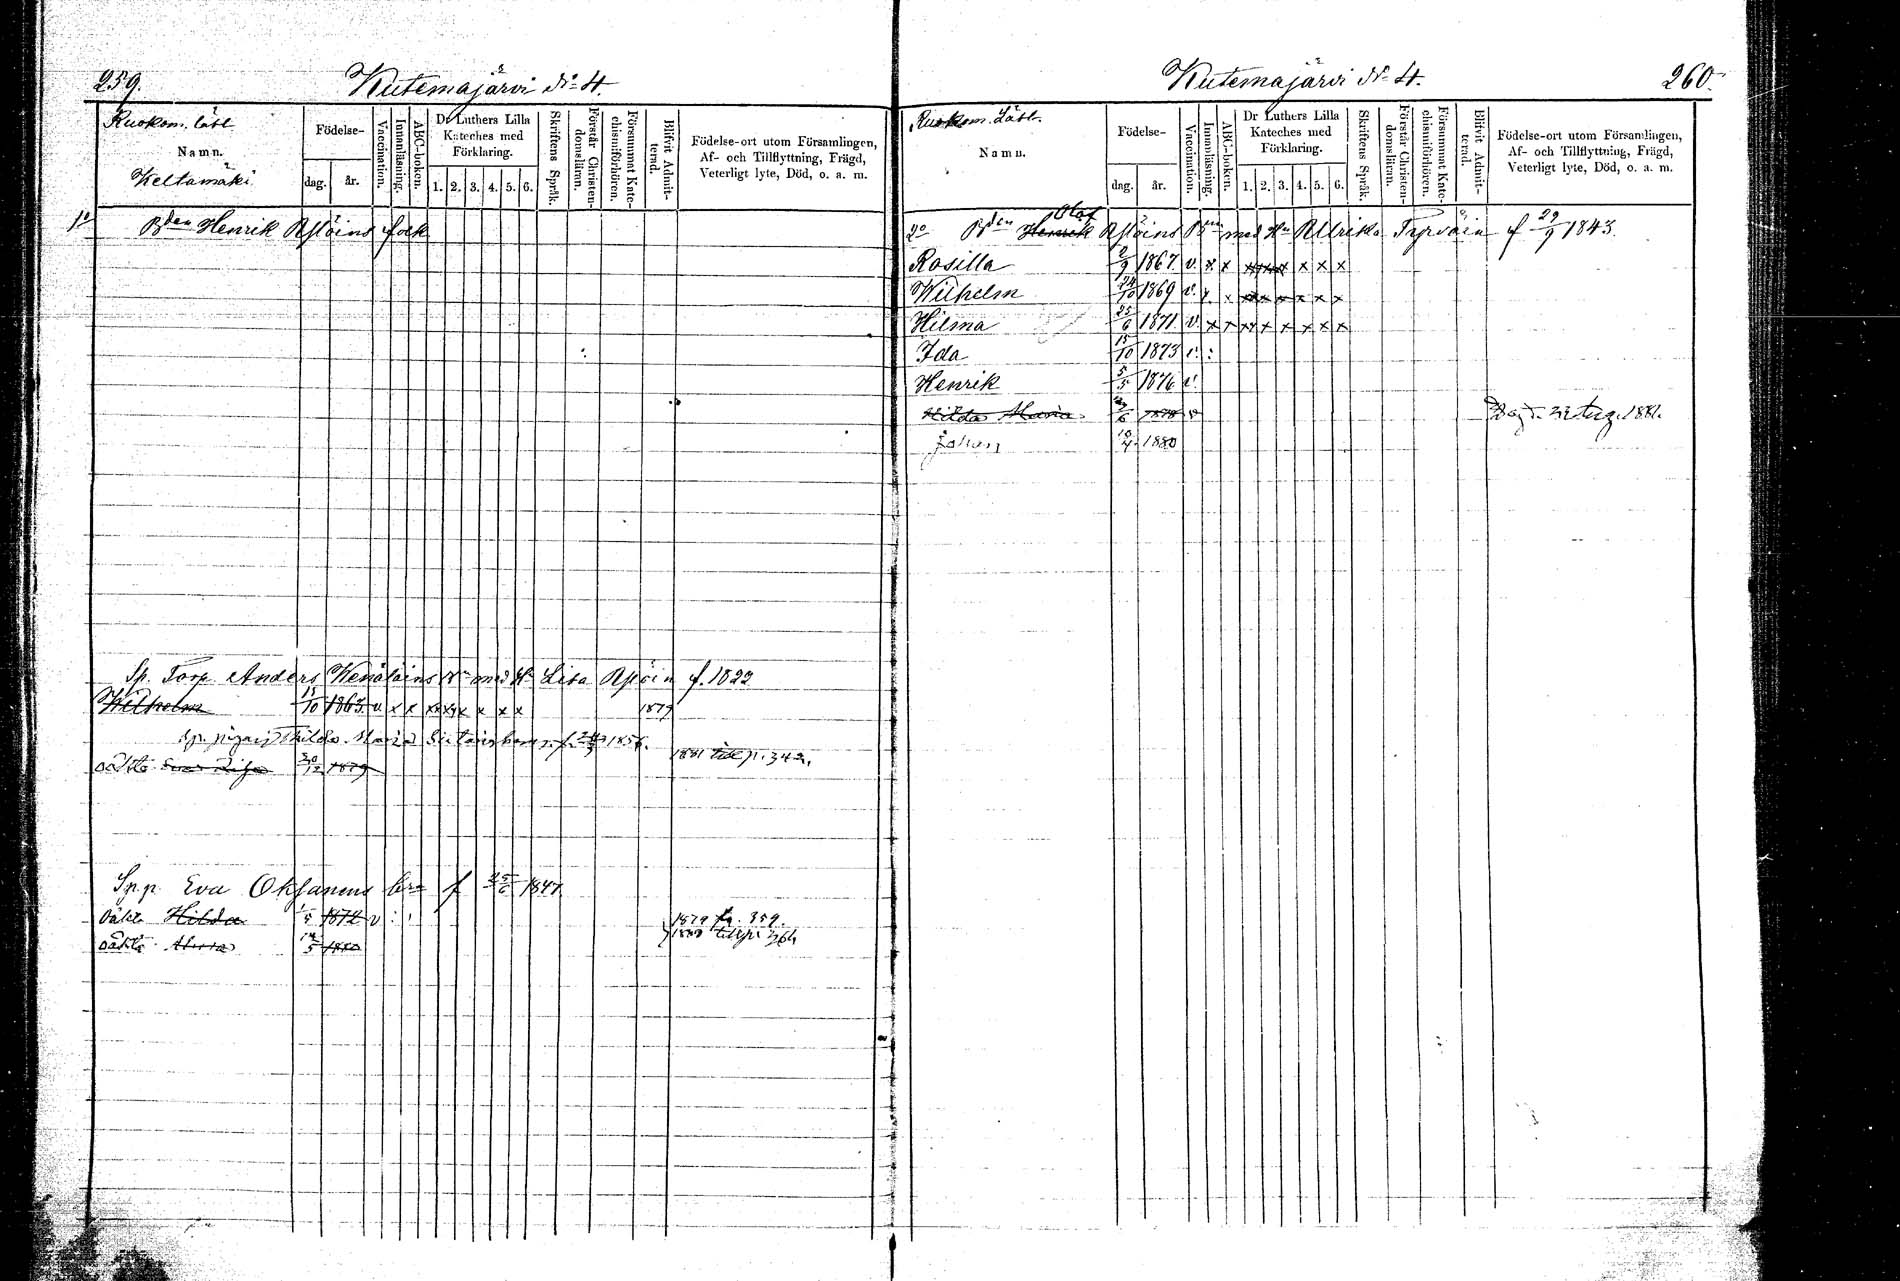 259.
Kutemajärvi No 4.
Ruokom. läsl.
Namn.
Keltamäki
Födelse-
dag. år.
Vaccination.
Innanläsning.
ABC-boken.
Dr Luthers Lilla
Kateches med
Förklaring.
1. 2. 3. 4. 5. 6.
Skriftens Språk.
Förstår Christen-
domsläran.
Försummat Kate-
chismiförhören.
Blifvit Admit-
terad.
Födelse-ort utom Församlingen,
Af- och Tillflyttning, Frägd,
Veterligt lyte, Död, o. a. m.
1o Bden Henrik folk
Sp. Torp. Anders med Lisa f. 1822
Wilhelm 15/10 1863 v x x x x x x 1879
Hilda Maria 1856.
oäkta Eva Lisa 20/12 1879 1881 till p. 342.
Sp. p. Eva Oksanens f 25/6 1847.
oäkt. Hilda 1/5 1872 v : 1879 fr. 359.
oäkta 14/5 1880 till p. 364
Kutemajärvi No 4.
260.
Ruokom. Läsl.
Namn.
Födelse-
dag. år.
Vaccination.
Innanläsning.
ABC-boken.
Dr Luthers Lilla
Kateches med
Förklaring.
1. 2. 3. 4. 5. 6.
Skriftens Språk.
Förstår Christen-
domsläran.
Försummat Kate-
chismiförhören.
Blifvit Admit-
terad.
Födelse-ort utom Församlingen,
Af- och Tillflyttning, Frägd,
Veterligt lyte, Död, o. a. m.
Olof
2o Bden Henrik med Hu Ullrika Tyrväin f 29/9 1843.
Rosilla 2/9 1867 v. x x x x x x x
Wilhelm 24/10 1869 v. x x x x x x x
Hilma 25/6 1871 v. x x x x x x x x
Ida 15/10 1873 v. :
Henrik 5/5 1876 v.
Hilda Maria 1878 v 1881.
Johan 10/4 1880